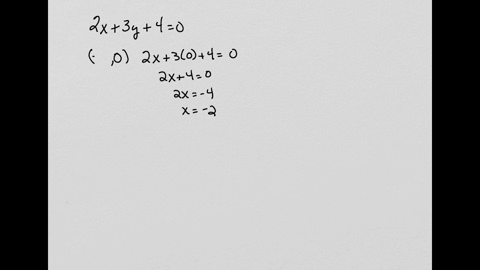 2x+3y+4=0
(- ,0) 2x+3(0)+4=0
2x+4=0
2x=-4
x=-2